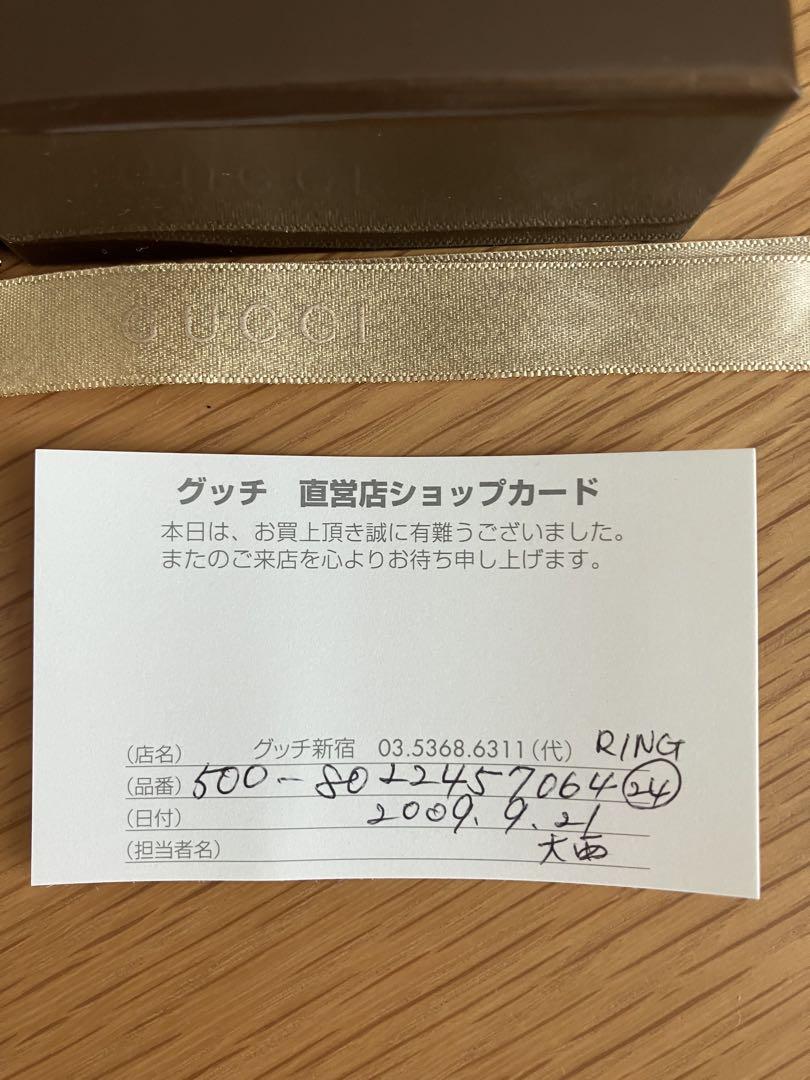 GUCCI
GUCCI
グッチ 直営店ショップカード
本日は、お買上頂き誠に有難うございました。
またのご来店を心よりお待ち申し上げます。
(店名) グッチ新宿 03.5368.6311(代) RING
(品番) 500-8022457064 24
(日付) 2009.9.21
(担当者名) 大西